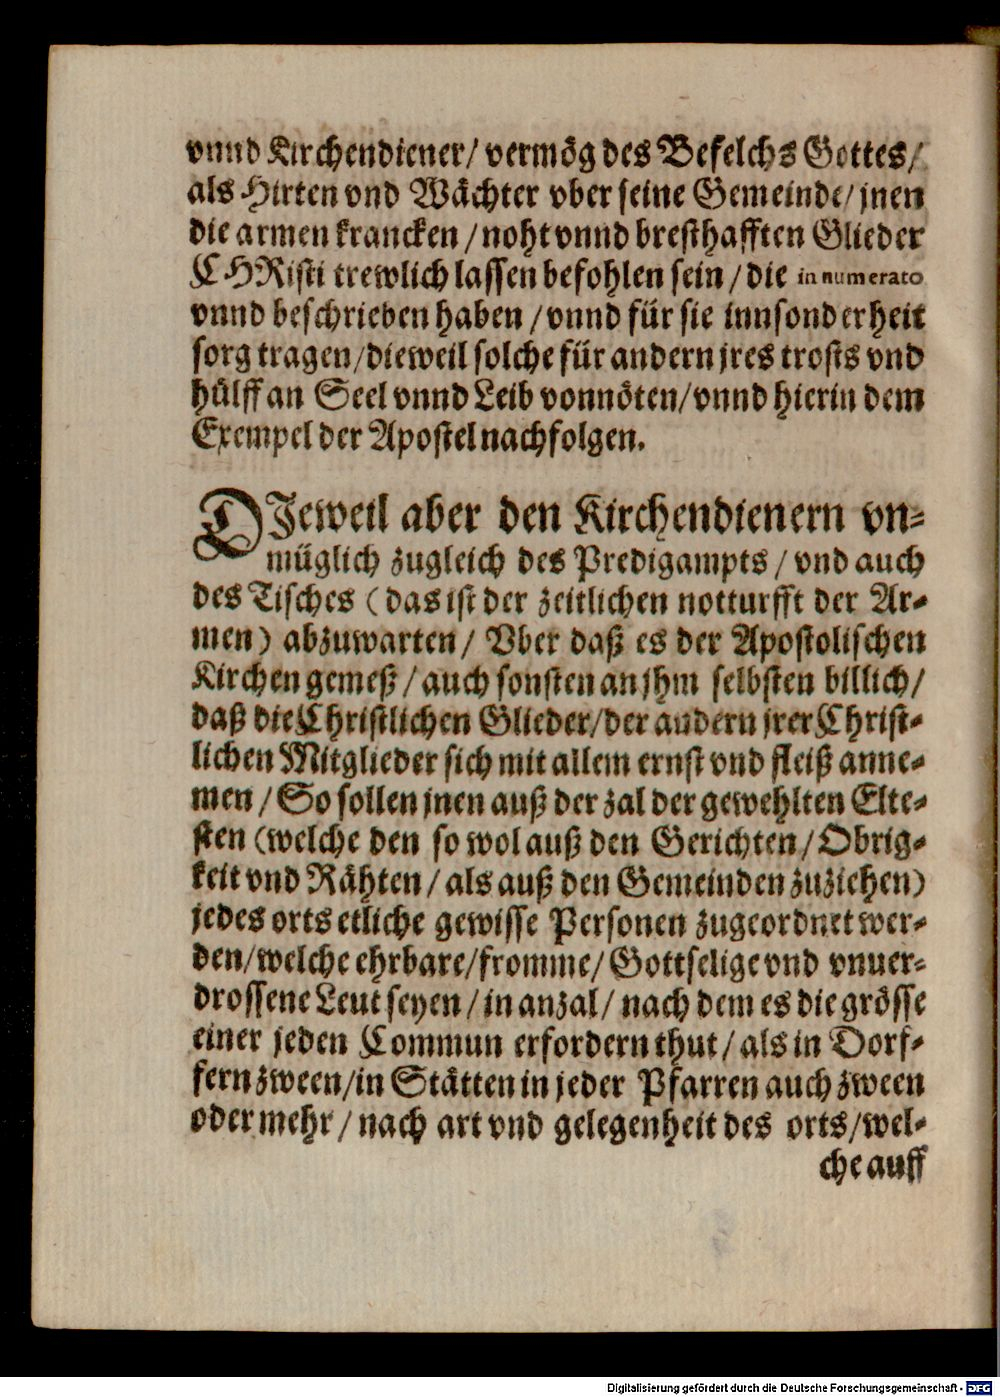 vnnd Kirchendiener/ vermög des Befelchs Gottes/
als Hirten vnd Wächter vber seine Gemeinde/ jnen
die armen krancken / noht vnnd bresthafften Glieder
CHRisti trewlich lassen befohlen sein / die in numerato
vnnd beschrieben haben / vnnd für sie innsonderheit
sorg tragen/ dieweil solche für andern jres trosts vnd
hülff an Seel vnnd Leib vonnöten/ vnnd hierin dem
Exempel der Apostel nachfolgen.
DJeweil aber den Kirchendienern vn-
müglich zugleich des Predigampts / vnd auch
des Tisches ( das ist der zeitlichen notturfft der Ar-
men ) abzuwarten / Vber daß es der Apostolischen
Kirchen gemeß / auch sonsten an jhm selbsten billich/
daß die Christlichen Glieder/ der andern jrer Christ-
lichen Mitglieder sich mit allem ernst vnd fleiß anne-
men / So sollen jnen auß der zal der gewehlten Elte-
sten (welche den so wol auß den Gerichten / Obrig-
keit vnd Rähten / als auß den Gemeinden zuziehen)
jedes orts etliche gewisse Personen zugeordnet wer-
den/ welche ehrbare/ fromme/ Gottselige vnd vnuer-
drossene Leut seyen / in anzal / nach dem es die grösse
einer jeden Commun erfordern thut / als in Dorf-
fern zween/ in Stätten in jeder Pfarren auch zween
oder mehr / nach art vnd gelegenheit des orts/ wel-
che auff
Digitalisierung gefördert durch die Deutsche Forschungsgemeinschaft - DFG